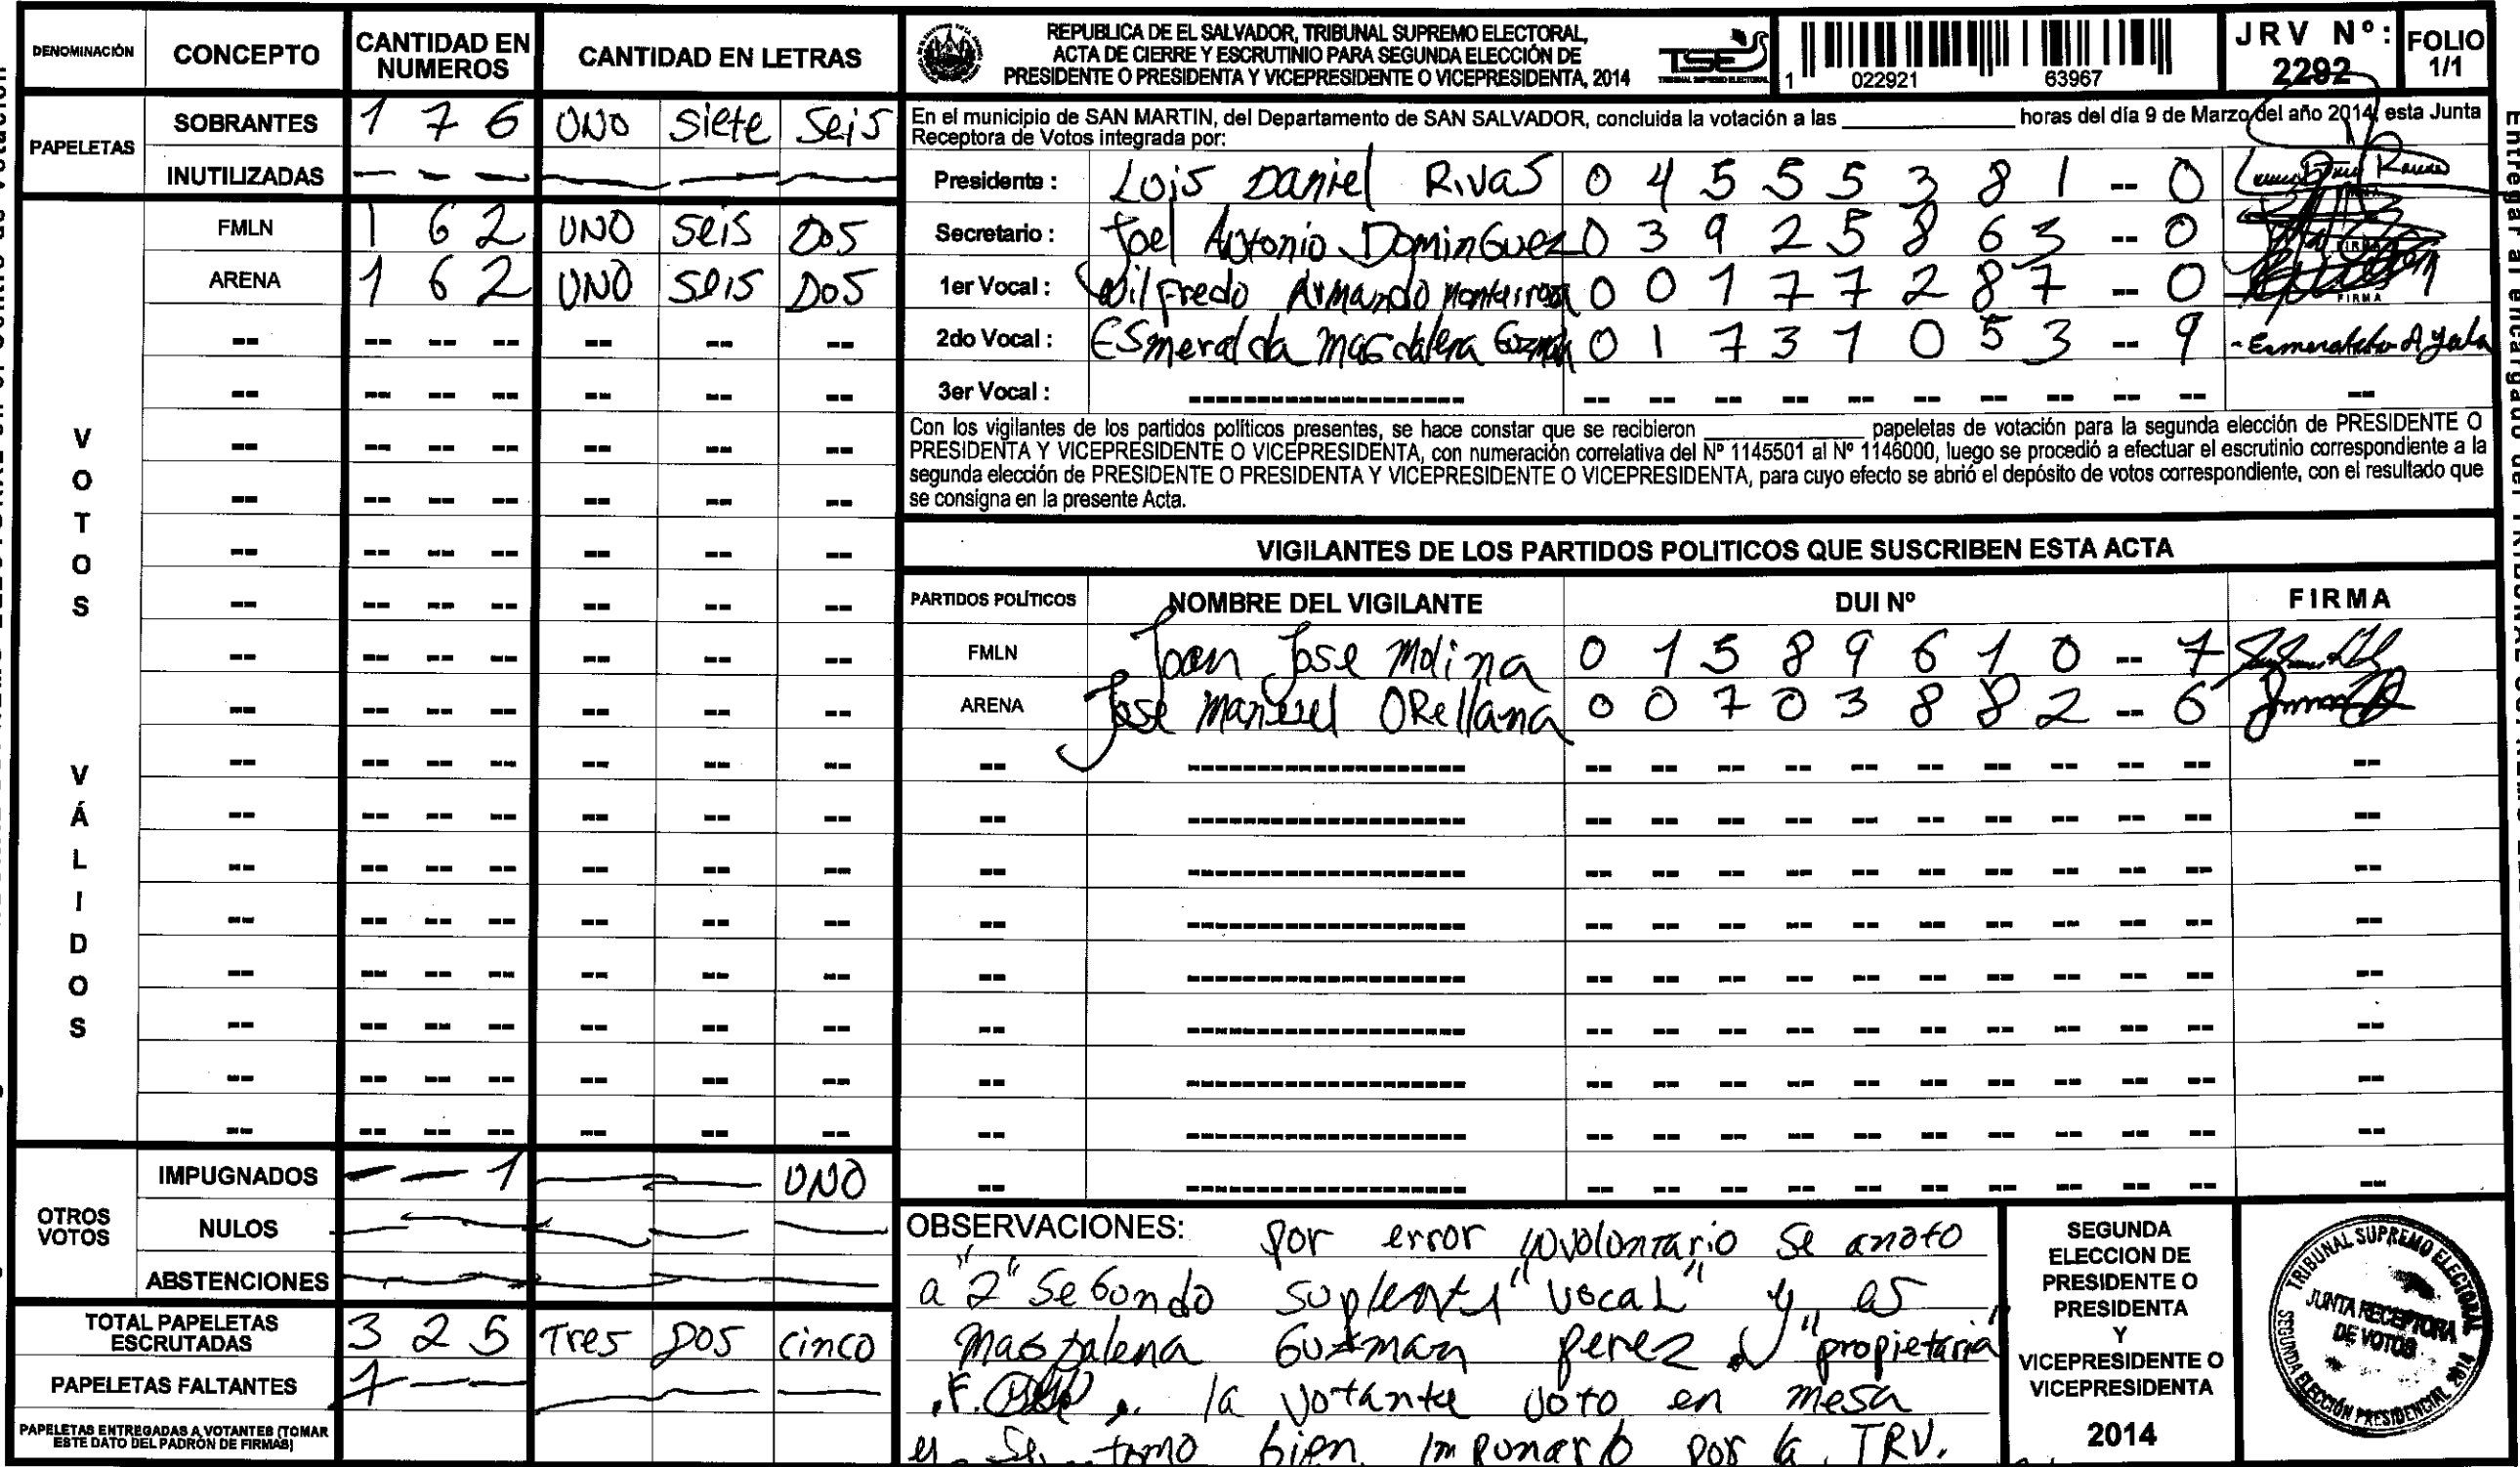 DENOMINACIÓN CONCEPTO CANTIDAD EN NUMEROS CANTIDAD EN LETRAS
PAPELETAS
SOBRANTES 1 7 6 UNO siete Seis
INUTILIZADAS
VOTOS VÁLIDOS
FMLN 1 6 2 UNO seis DOS
ARENA 1 6 2 UNO seis DOS
OTROS VOTOS
IMPUGNADOS 1 UNO
NULOS
ABSTENCIONES
TOTAL PAPELETAS ESCRUTADAS 3 2 5 Tres DOS cinco
PAPELETAS FALTANTES
PAPELETAS ENTREGADAS A VOTANTES (TOMAR ESTE DATO DEL PADRÓN DE FIRMAS)
REPUBLICA DE EL SALVADOR, TRIBUNAL SUPREMO ELECTORAL,
ACTA DE CIERRE Y ESCRUTINIO PARA SEGUNDA ELECCIÓN DE
PRESIDENTE O PRESIDENTA Y VICEPRESIDENTE O VICEPRESIDENTA, 2014
TSE
TRIBUNAL SUPREMO ELECTORAL
1 022921 63967
JRV Nº: 2292
FOLIO 1/1
En el municipio de SAN MARTIN, del Departamento de SAN SALVADOR, concluida la votación a las ____ horas del día 9 de Marzo del año 2014, esta Junta
Receptora de Votos integrada por:
Presidente : Lois Daniel Rivas 0 4 5 5 5 3 8 1 -- 0
Secretario : Joel Antonio Dominguez 0 3 9 2 5 8 6 3 -- 0
1er Vocal : Wilfredo Armando Monterrosa 0 0 1 7 7 2 8 7 -- 0
2do Vocal : Esmeralda Magdalena Guzman 0 1 7 3 1 0 5 3 -- 9
3er Vocal :
Con los vigilantes de los partidos políticos presentes, se hace constar que se recibieron ____ papeletas de votación para la segunda elección de PRESIDENTE O
PRESIDENTA Y VICEPRESIDENTE O VICEPRESIDENTA, con numeración correlativa del Nº 1145501 al Nº 1146000, luego se procedió a efectuar el escrutinio correspondiente a la
segunda elección de PRESIDENTE O PRESIDENTA Y VICEPRESIDENTE O VICEPRESIDENTA, para cuyo efecto se abrió el depósito de votos correspondiente, con el resultado que
se consigna en la presente Acta.
VIGILANTES DE LOS PARTIDOS POLITICOS QUE SUSCRIBEN ESTA ACTA
PARTIDOS POLÍTICOS NOMBRE DEL VIGILANTE DUI Nº FIRMA
FMLN Joan Jose Molina 0 1 5 8 9 6 1 0 -- 7
ARENA Jose Manuel ORellana 0 0 7 0 3 8 8 2 -- 6
OBSERVACIONES: Por error involontario se anoto
a "2" Segondo suplente "vocal" y es
Magdalena Guzman Perez "propietaria"
la votante voto en mesa
se tomo bien por la JRV.
SEGUNDA
ELECCION DE
PRESIDENTE O
PRESIDENTA
Y
VICEPRESIDENTE O
VICEPRESIDENTA
2014
TRIBUNAL SUPREMO ELECTORAL
JUNTA RECEPTORA
DE VOTOS
SEGUNDA ELECCIÓN PRESIDENCIAL 2014